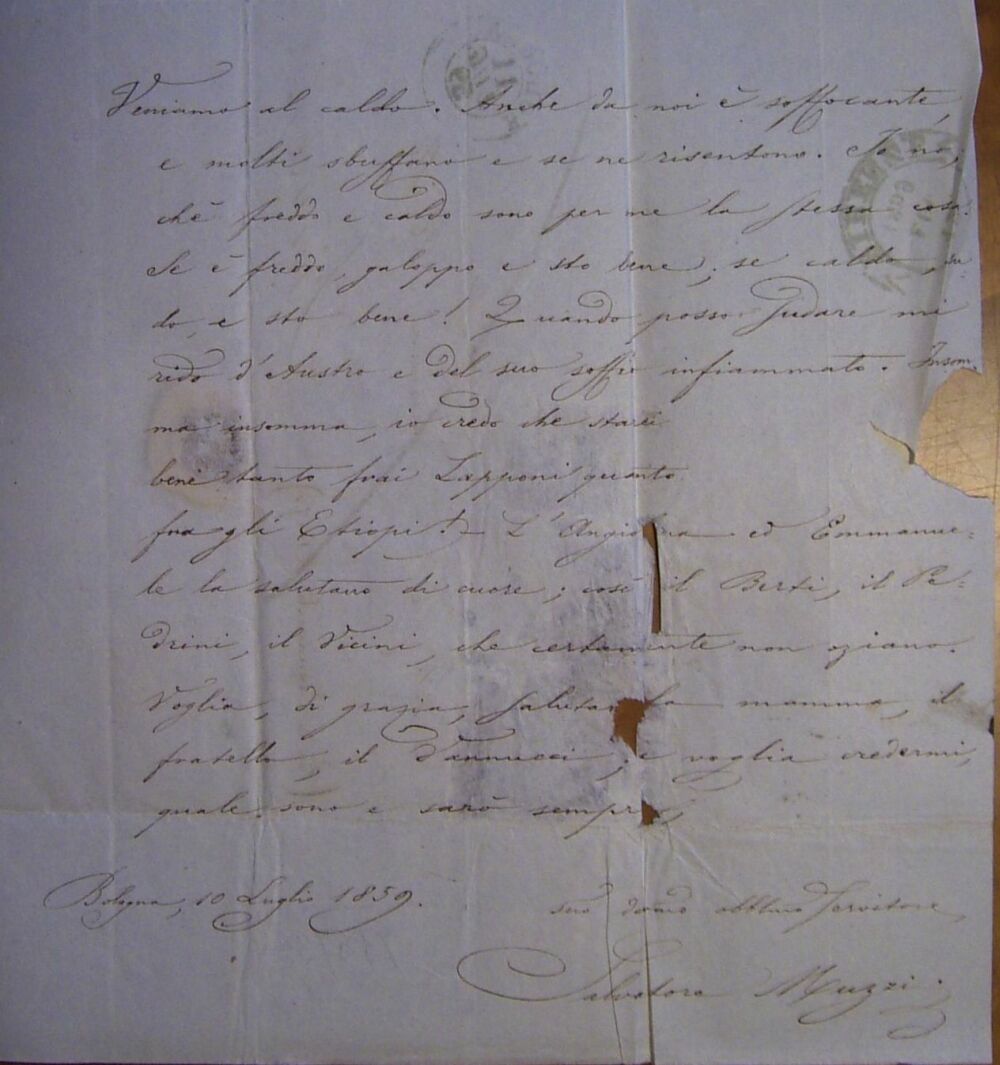 Veniamo al caldo. Anche da noi è soffocante,
e molti sbuffano e se ne risentono. Io no,
chè freddo e caldo sono per me la stessa cosa.
Se è freddo, galoppo e sto bene; se caldo, su
do, e sto bene! Quando posso sudare mi
rido d'Austro e del suo soffio infiammato. Insom
ma insomma, io credo che starei
bene tanto frai Lapponi quanto
fra gli Etiopi! - L'Angiolina ed Emmanue=
le la salutano di cuore; così il Berti, il Pe=
drini, il Vicini, che certamente non oziano.
Voglia, di grazia, salutar la mamma, il
fratello, il Vannucci; e voglia credermi,
quale sono e sarò sempre,
Bologna, 10 Luglio 1859.
suo obbmo servitore
Salvatore Muzzi.